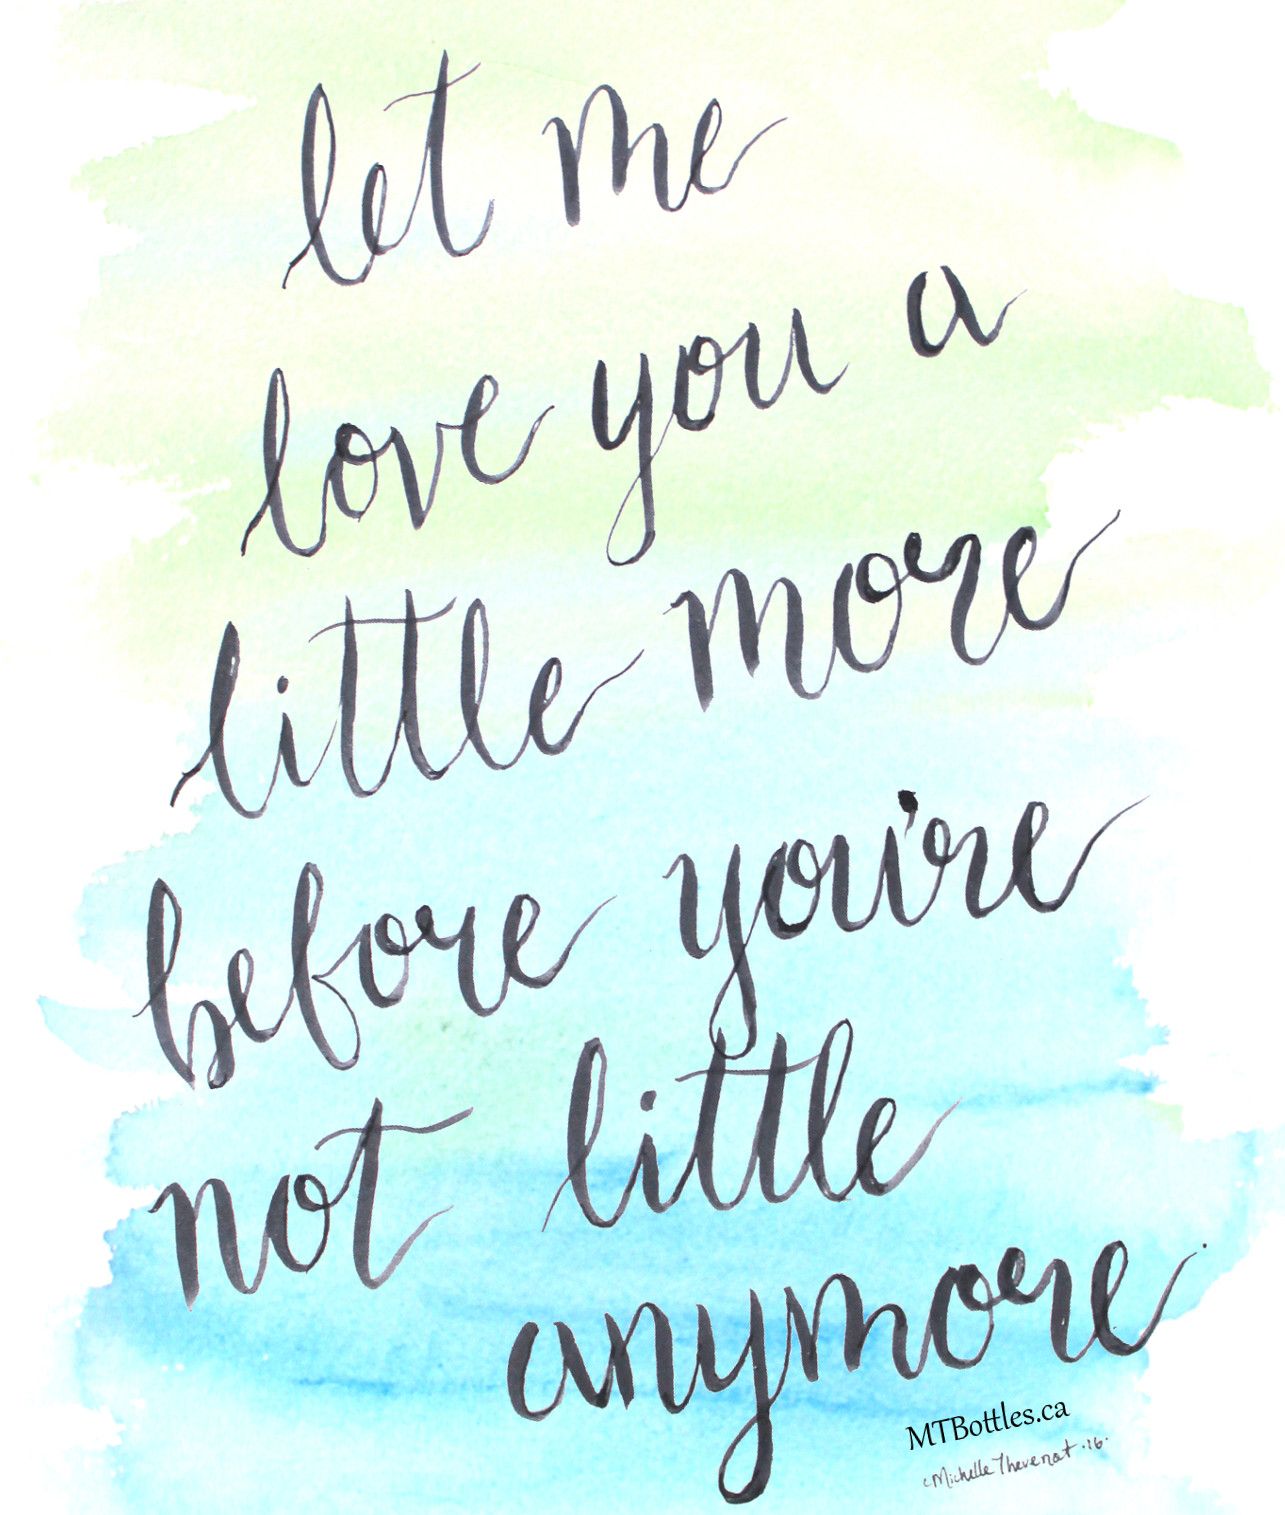 let me
love you a
little more
before you're
not little
anymore.
MTBottles.ca
Michelle Thevenot .16.